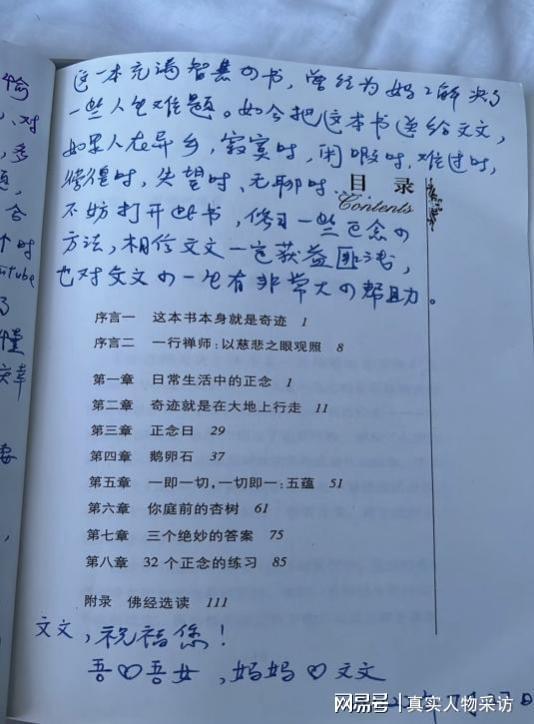 这一本充满智慧の书，曾经为妈妈解决了
一些人生难题。如今把这本书送给文文，
如果人在异乡，寂寞时，闲暇时，难过时，
彷徨时，失望时、无聊时……
不妨打开此书，修习一些正念の
方法，相信文文一定获益匪浅，
也对文文の一生有非常大の帮助。
目录
Contents
序言一 这本书本身就是奇迹 1
序言二 一行禅师：以慈悲之眼观照 8
第一章 日常生活中的正念 1
第二章 奇迹就是在大地上行走 11
第三章 正念日 29
第四章 鹅卵石 37
第五章 一即一切，一切即一：五蕴 51
第六章 你庭前的杏树 61
第七章 三个绝妙的答案 75
第八章 32个正念的练习 85
附录 佛经选读 111
文文，祝福您！
吾♡吾女，妈妈♡文文
网易号 | 真实人物采访
对
多
时
utube